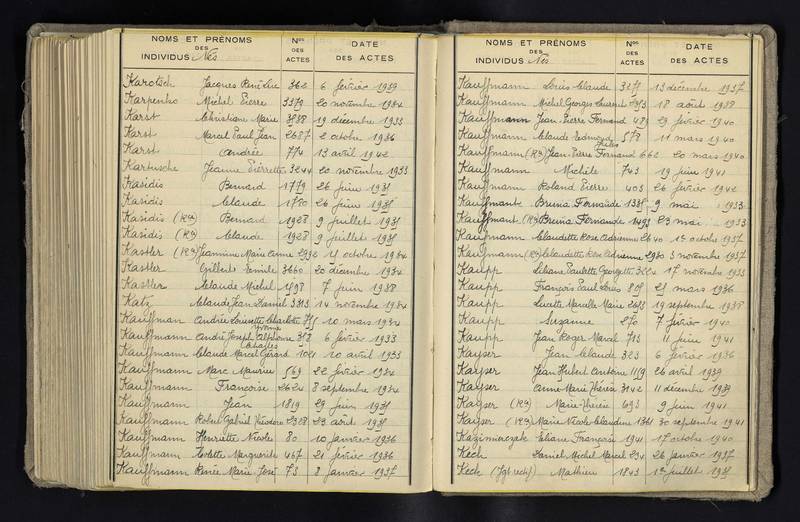 NOMS ET PRÉNOMS
DES
INDIVIDUS Nés
Nos
DES
ACTES
DATE
DES ACTES
Karotsch Jacques 362 6 février 1939
Karpenko Michel Pierre 3379 20 novembre 1934
Karst Christiane Marie 3838 19 décembre 1933
Karst Marcel Paul Jean 2687 2 octobre 1936
Karst Andrée 774 13 avril 1942
Kartusche Jeanne Pierrette 3244 20 novembre 1933
Kasidis Bernard 1779 26 juin 1931
Kasidis Claude 1780 26 juin 1931
Kasidis (Ron) Bernard 1928 9 juillet 1931
Kasidis (Ron) Claude 1928 9 juillet 1931
Kastler Jeannine Marie Anne 2992 4 octobre 1934
Kastler Gilbert Emile 3660 20 décembre 1934
Kastler Claude Michel 1498 7 juin 1938
Katz Claude Jean Daniel 3313 14 novembre 1934
Kauffman Andrée Louisette Charlotte 10 mars 1934
Kauffmann André Joseph Alphonse 318 6 février 1933
Kauffmann Claude Marcel Gérard 1021 10 avril 1933
Kauffmann Marc Maurice 569 22 février 1934
Kauffmann Françoise 2624 8 septembre 1934
Kauffmann Jean 1819 29 juin 1931
Kauffmann Robert Gabriel Théodore 2308 29 août 1931
Kauffmann Henriette Nicole 80 10 janvier 1936
Kauffmann Colette Marguerite 467 21 février 1936
Kauffmann Renée Marie José 73 8 janvier 1937
NOMS ET PRÉNOMS
DES
INDIVIDUS Nés
Nos
DES
ACTES
DATE
DES ACTES
Kauffmann Louis Claude 3277 13 décembre 1937
Kauffmann Michel Georges Laurent 18 août 1938
Kauffmann Jean Pierre Fernand 489 29 février 1940
Kauffmann Claude 578 11 mars 1940
Kauffmann (Ron) Jean Pierre Fernand 662 20 mars 1940
Kauffmann Michèle 743 19 juin 1941
Kauffmann Roland Pierre 403 26 février 1942
Kauffmant Bruna Fernande 1331 9 mai 1933
Kauffmant (Ron) Bruna Fernande 1493 23 mai 1933
Kaufmann Claudette Rose Adrienne 2640 1er octobre 1937
Kaufmann (Ron) Claudette Rose Adrienne 2930 3 novembre 1937
Kaupp Liliane Paulette Georgette 3224 17 novembre 1933
Kaupp François Paul Louis 801 21 mars 1936
Kaupp Lucette Marcelle Marie 19 septembre 1938
Kaupp Suzanne 270 7 février 1940
Kaupp Jean Roger Marcel 713 11 juin 1941
Kayser Jean Claude 323 6 février 1936
Kayser Jean Hubert Antoine 1119 26 avril 1939
Kayser Anne Marie Thérèse 3142 11 décembre 1939
Kayser (Ron) Marie Thérèse 693 9 juin 1941
Kayser (Ron) Marie Nicole Claudine 1361 30 septembre 1941
Kazimierczak Eliane Françoise 1941 17 octobre 1940
Keck Daniel Michel Marcel 234 26 janvier 1937
Keck Mathieu 1843 1er juillet 1931